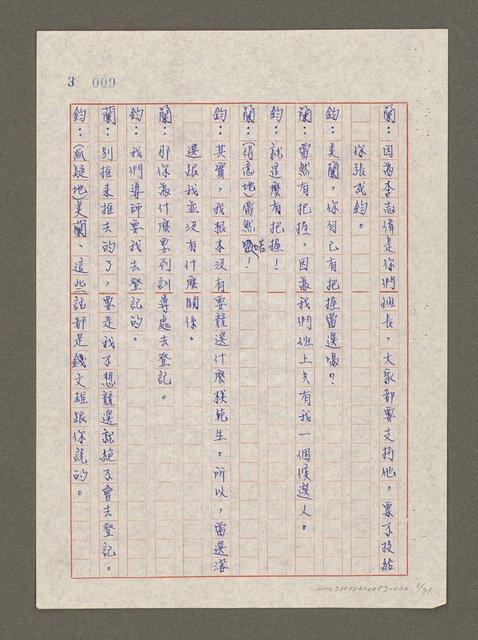 3 009
蘭：因為李志偉是你們班長，大家都要支持他，要不投給
你張武鈞。
鈞：美蘭，你自己有把握當選嗎？
蘭：當然有把握，因為我們班上只有我一個候選人。
鈞：就這麼有把握！
蘭：（得意地）當然啦！
鈞：其實，我根本沒有要競選什麼模範生。所以，當選落
選跟我並沒有什麼關係。
蘭：那你為什麼要到訓導處去登記。
鈞：我們導師要我去登記的。
蘭：別推來推去的了，要是我不想競選就絕不會去登記。
鈞：（孤疑地）美蘭，這些話都是錢文雄跟你說的。